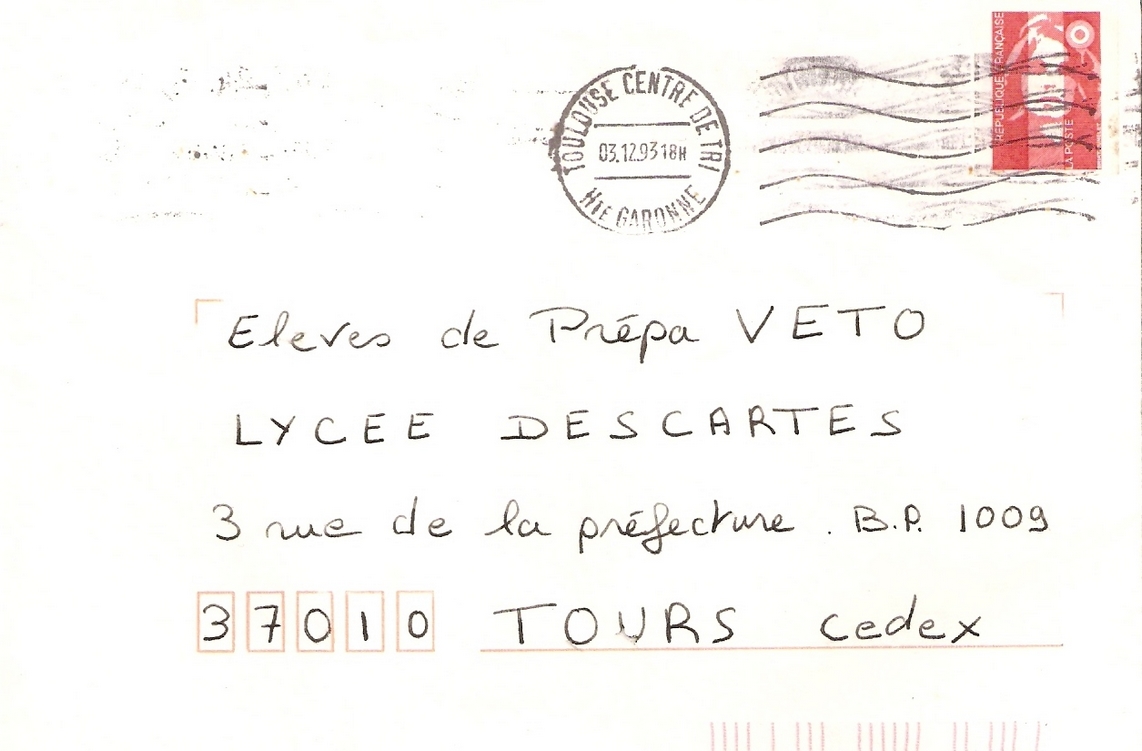 TOULOUSE CENTRE DE TRI
03.12.93 18H
HTE GARONNE
REPUBLIQUE FRANÇAISE
LA POSTE
Eleves de Prépa VETO
LYCEE DESCARTES
3 rue de la préfecture . B.P. 1009
37010 TOURS cedex